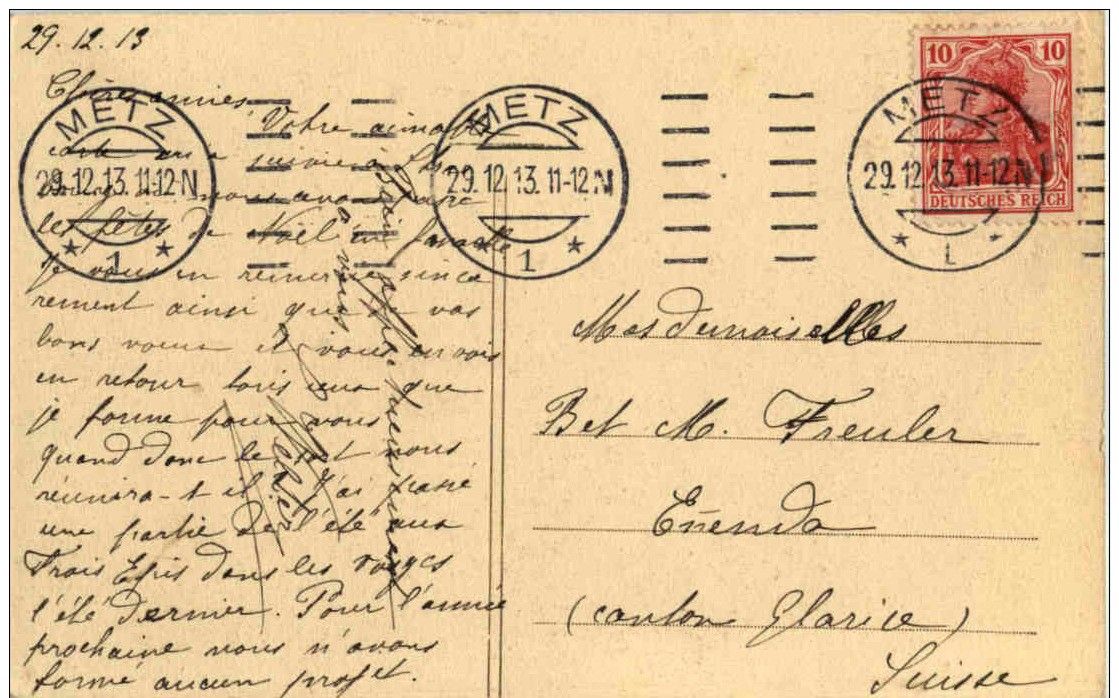 29.12.13
Chères amies
Votre aimable
carte m'a suivie à
nous avons passé
les fêtes de Noël en famille
Je vous en remercie sincè
rement ainsi que de vos
bons voeux et vous envois
en retour tous ceux que
je forme pour vous
quand donc le sort nous
réunira-t-il. J'ai passé
une partie de l'été aux
Trois Epis dans les Vosges
l'été dernier. Pour l'année
prochaine nous n'avons
formé aucun projet.
à vous
METZ
29.12.13.11-12N
* 1 *
METZ
29.12.13.11-12N
* 1 *
METZ
29.12.13.11-12N
* 1 *
10 10
DEUTSCHES REICH
Mesdemoiselles
B et M. Freuler
Ennenda
(canton Glarice)
Suisse